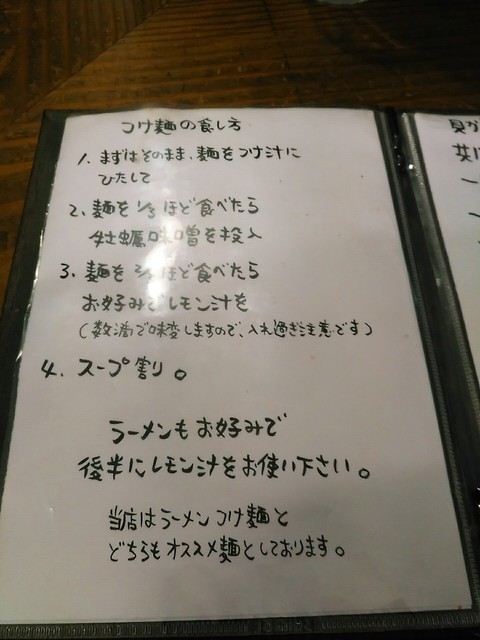 つけ麺の食し方
1. まずはそのまま、麺をつけ汁に
ひたして
2、麺を1/3ほど食べたら
牡蠣味噌を投入
3、麺を2/3ほど食べたら
お好みでレモン汁を
(数滴で味変しますので、入れ過ぎ注意です)
4、スープ割り。
ラーメンもお好みで
後半にレモン汁をお使い下さい。
当店はラーメンつけ麺と
どちらもオススメ麺としております。